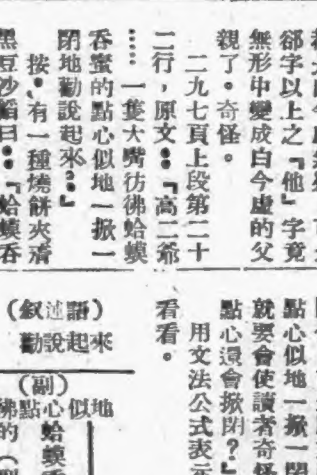 郤字以上之『他』字竟
無形中變成白今虛的父
親了。奇怪。
二九七頁上段第二十
二行，原文：『高二爺
……一隻大嘴彷彿蛤蟆
吞蜜的點心似地一掀一
閉地勸說起來。』
按：有一種燒餅夾濟
黑豆沙餡曰：『蛤蟆吞
點心似地一掀一閉
就要會使讀者奇怪
點心還會掀閉？』
用文法公式表示
看看。
（敘述語）
勸說起來
（副）
似地
點心
蛤蟆